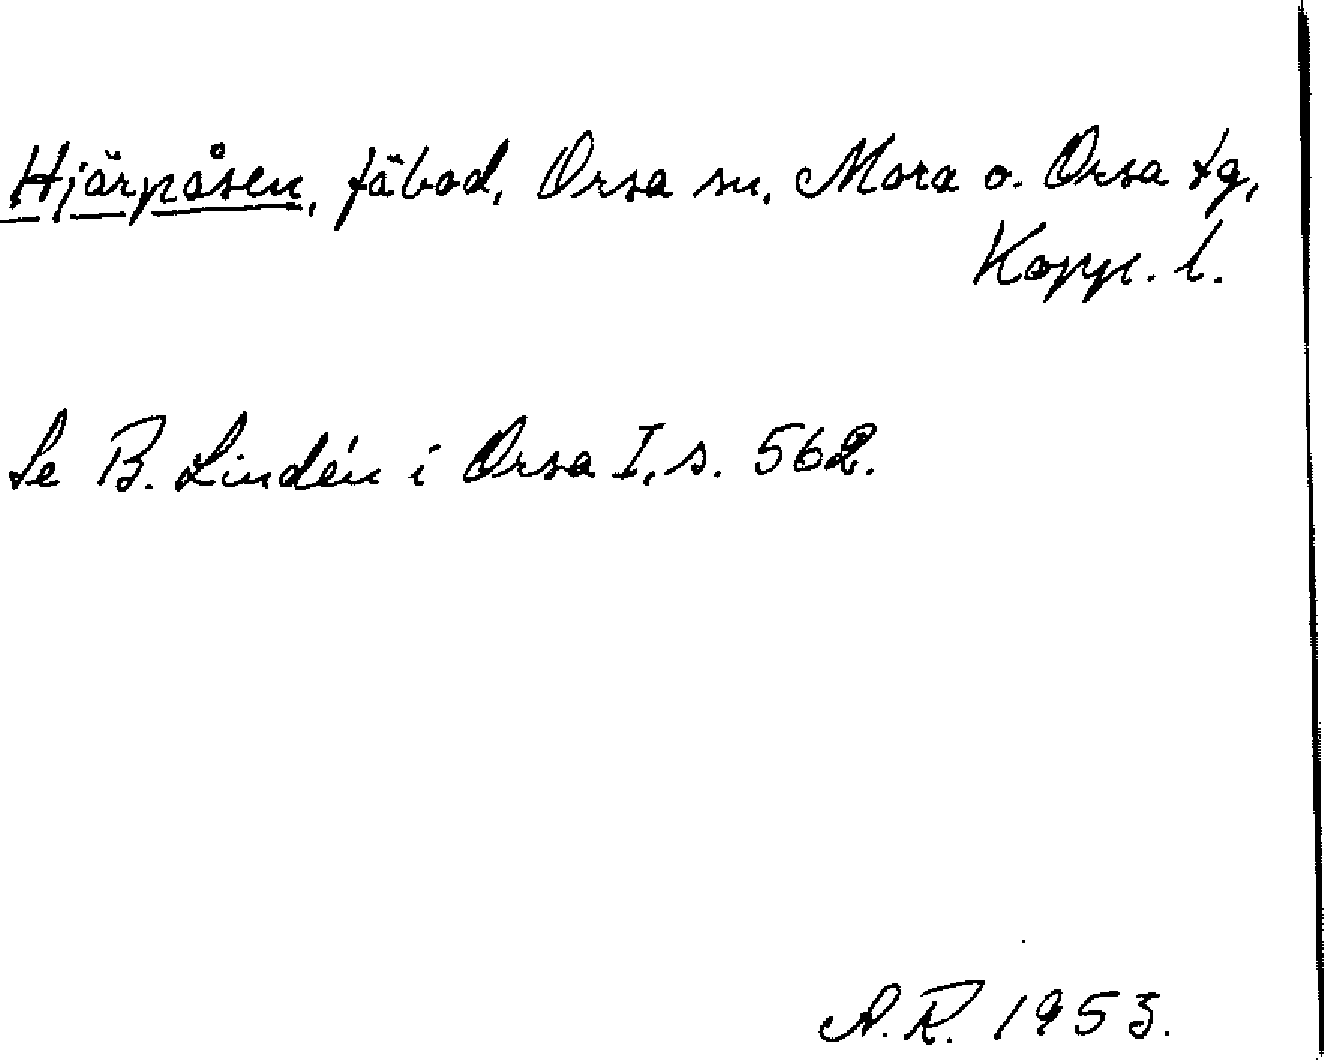 Hjärpåsen, fäbod, Orsa sn, Mora o. Orsa tg,
Kopp. l.
Se B. Lindén i Orsa I, s. 562.
A.R. 1953.